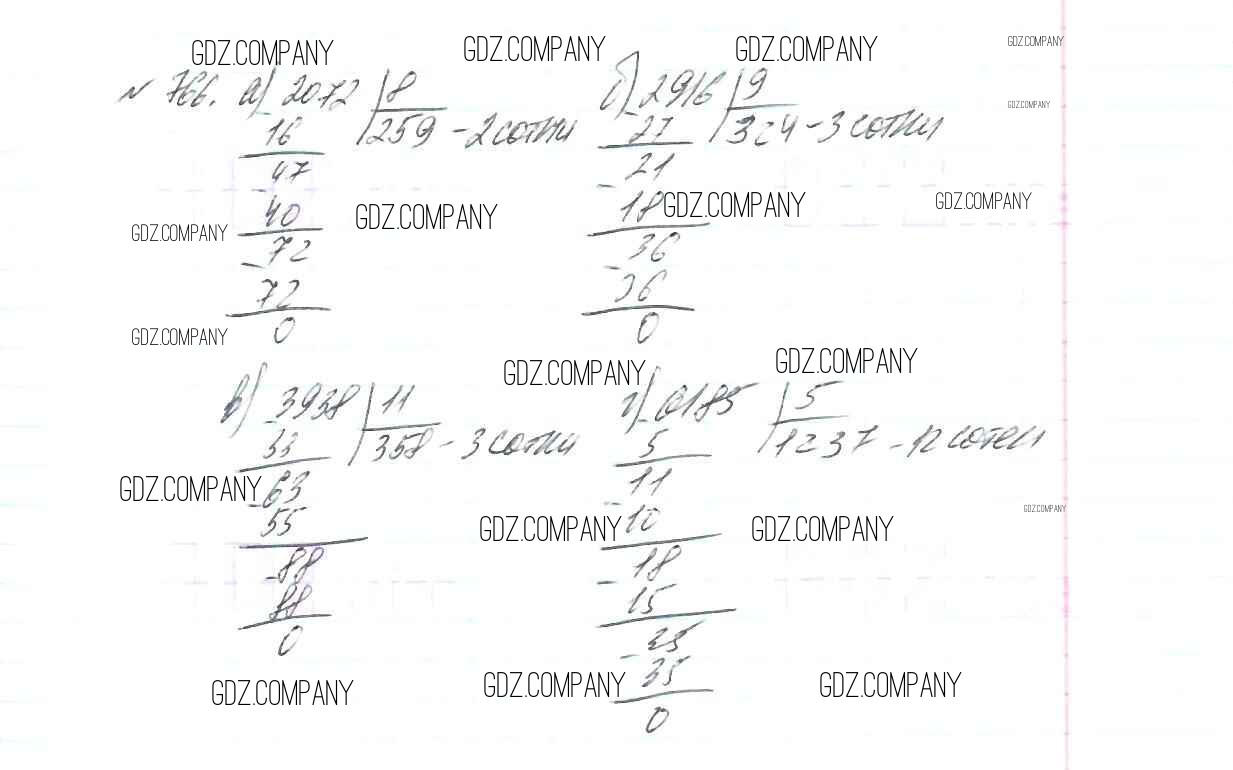 GDZ.COMPANY GDZ.COMPANY GDZ.COMPANY GDZ.COMPANY
№ 766. а) 2072 | 8 б) 2916 | 9 GDZ.COMPANY
16 259 - 2 сотни 27 324 - 3 сотни
47 21
40 GDZ.COMPANY 18 GDZ.COMPANY GDZ.COMPANY
GDZ.COMPANY 72 36
72 36
GDZ.COMPANY 0 0
GDZ.COMPANY GDZ.COMPANY
в) 3938 | 11 г) 6185 | 5
33 358 - 3 сотни 5 1237 - 12 сотен
GDZ.COMPANY 63 11
55 10 GDZ.COMPANY GDZ.COMPANY GDZ.COMPANY
88 18
88 15
0 35
35
GDZ.COMPANY GDZ.COMPANY GDZ.COMPANY
0